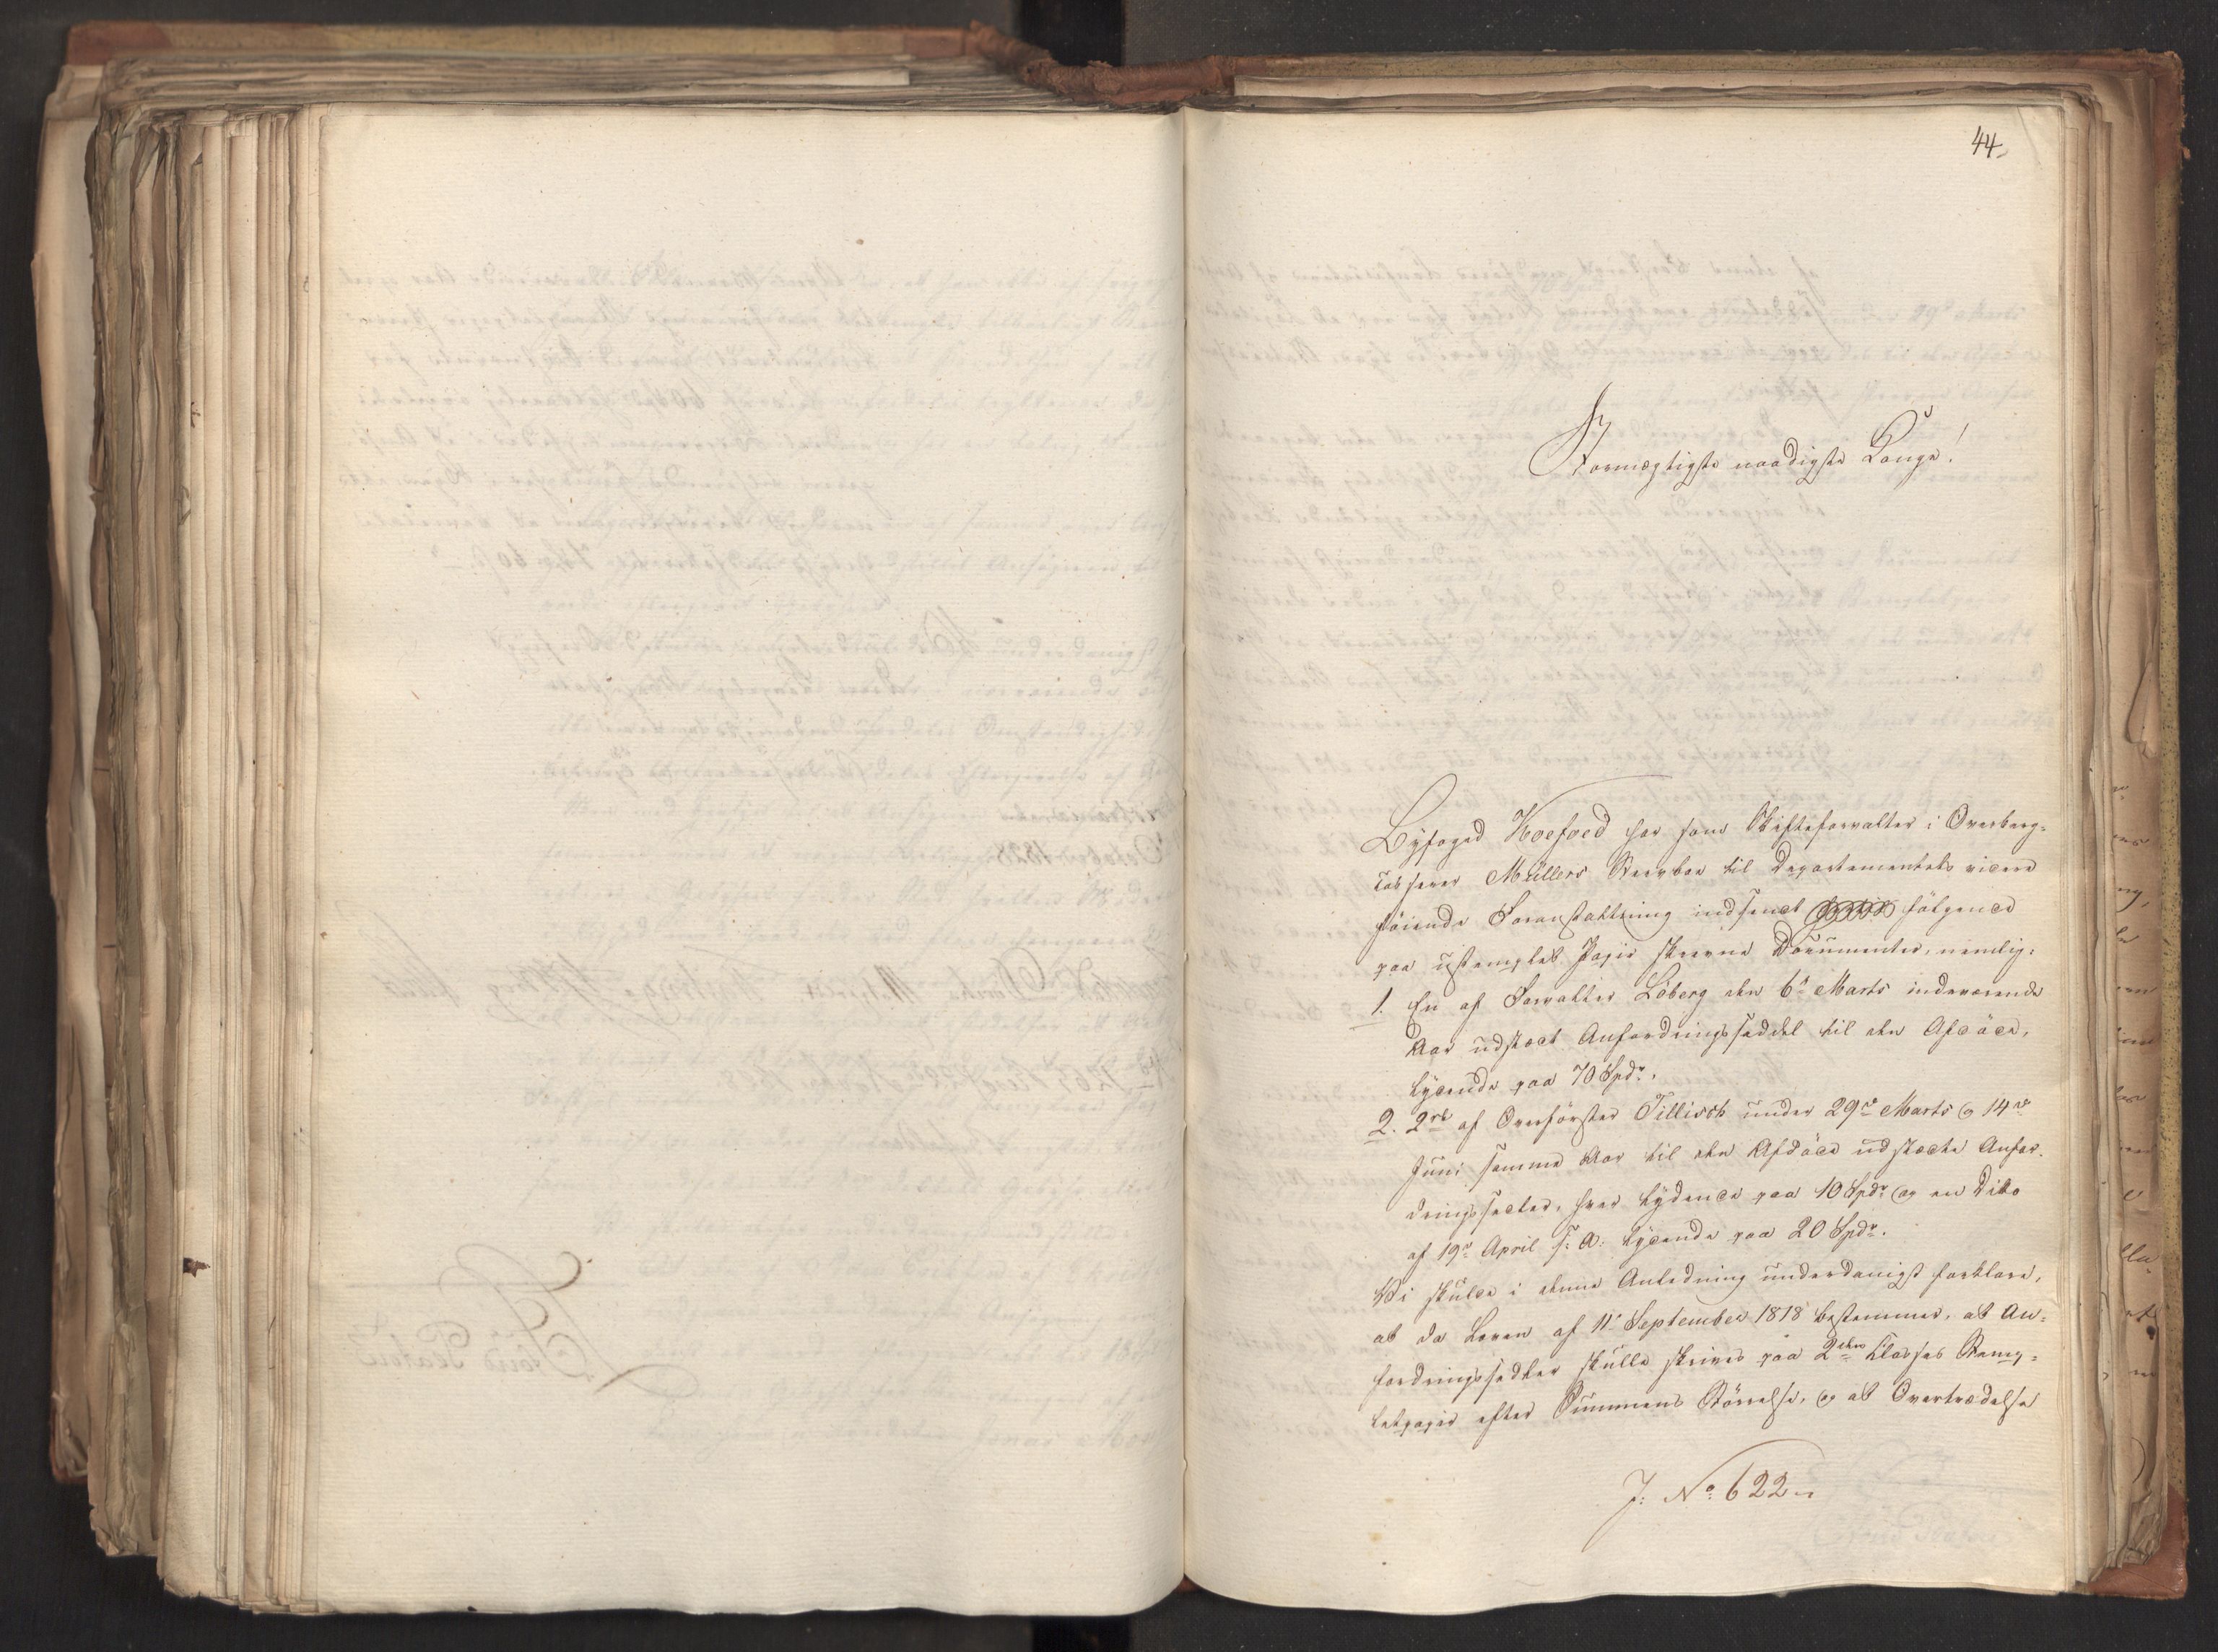 44.
Stormægtigste naadigste Konge!
Byfoged Hoefoed har som Skifteforvalter i Overberg-
Müllers Sterbboe til Departementets videre
føiende Foranstaltning indsendt følgende
paa ustemplet Papir skrevne Documenter, nemlig:
1. En af Forvalter Löberg den 6te Marts indeværende
Aar udstædt Anfordringsseddel til den Afdöde,
lydende paa 70 Spdr.
2. 2de af Overförster Tillisch under 29de Marts og 14de
Juni samme Aar til den Afdöde udstædte Anfor-
dringssedler, hver lydende paa 10 Spdr og en Dito
af 19de April s: A: lydende paa 20 Spdr.
Vi skulde i denne Anledning underdanigst forklare,
at da Loven af 11te September 1818 bestemmer, at An-
fordringssedler skulle skrives paa 2den Classes Stemp-
letpapir efter Summens Störrelse, og at Overtrædelse
J: No 622